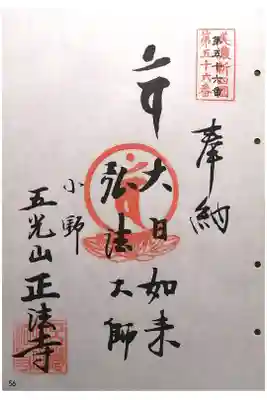 美濃新四國
第五十六番
奉納
大日如来
弘法大師
小野
五光山 正法寺
56